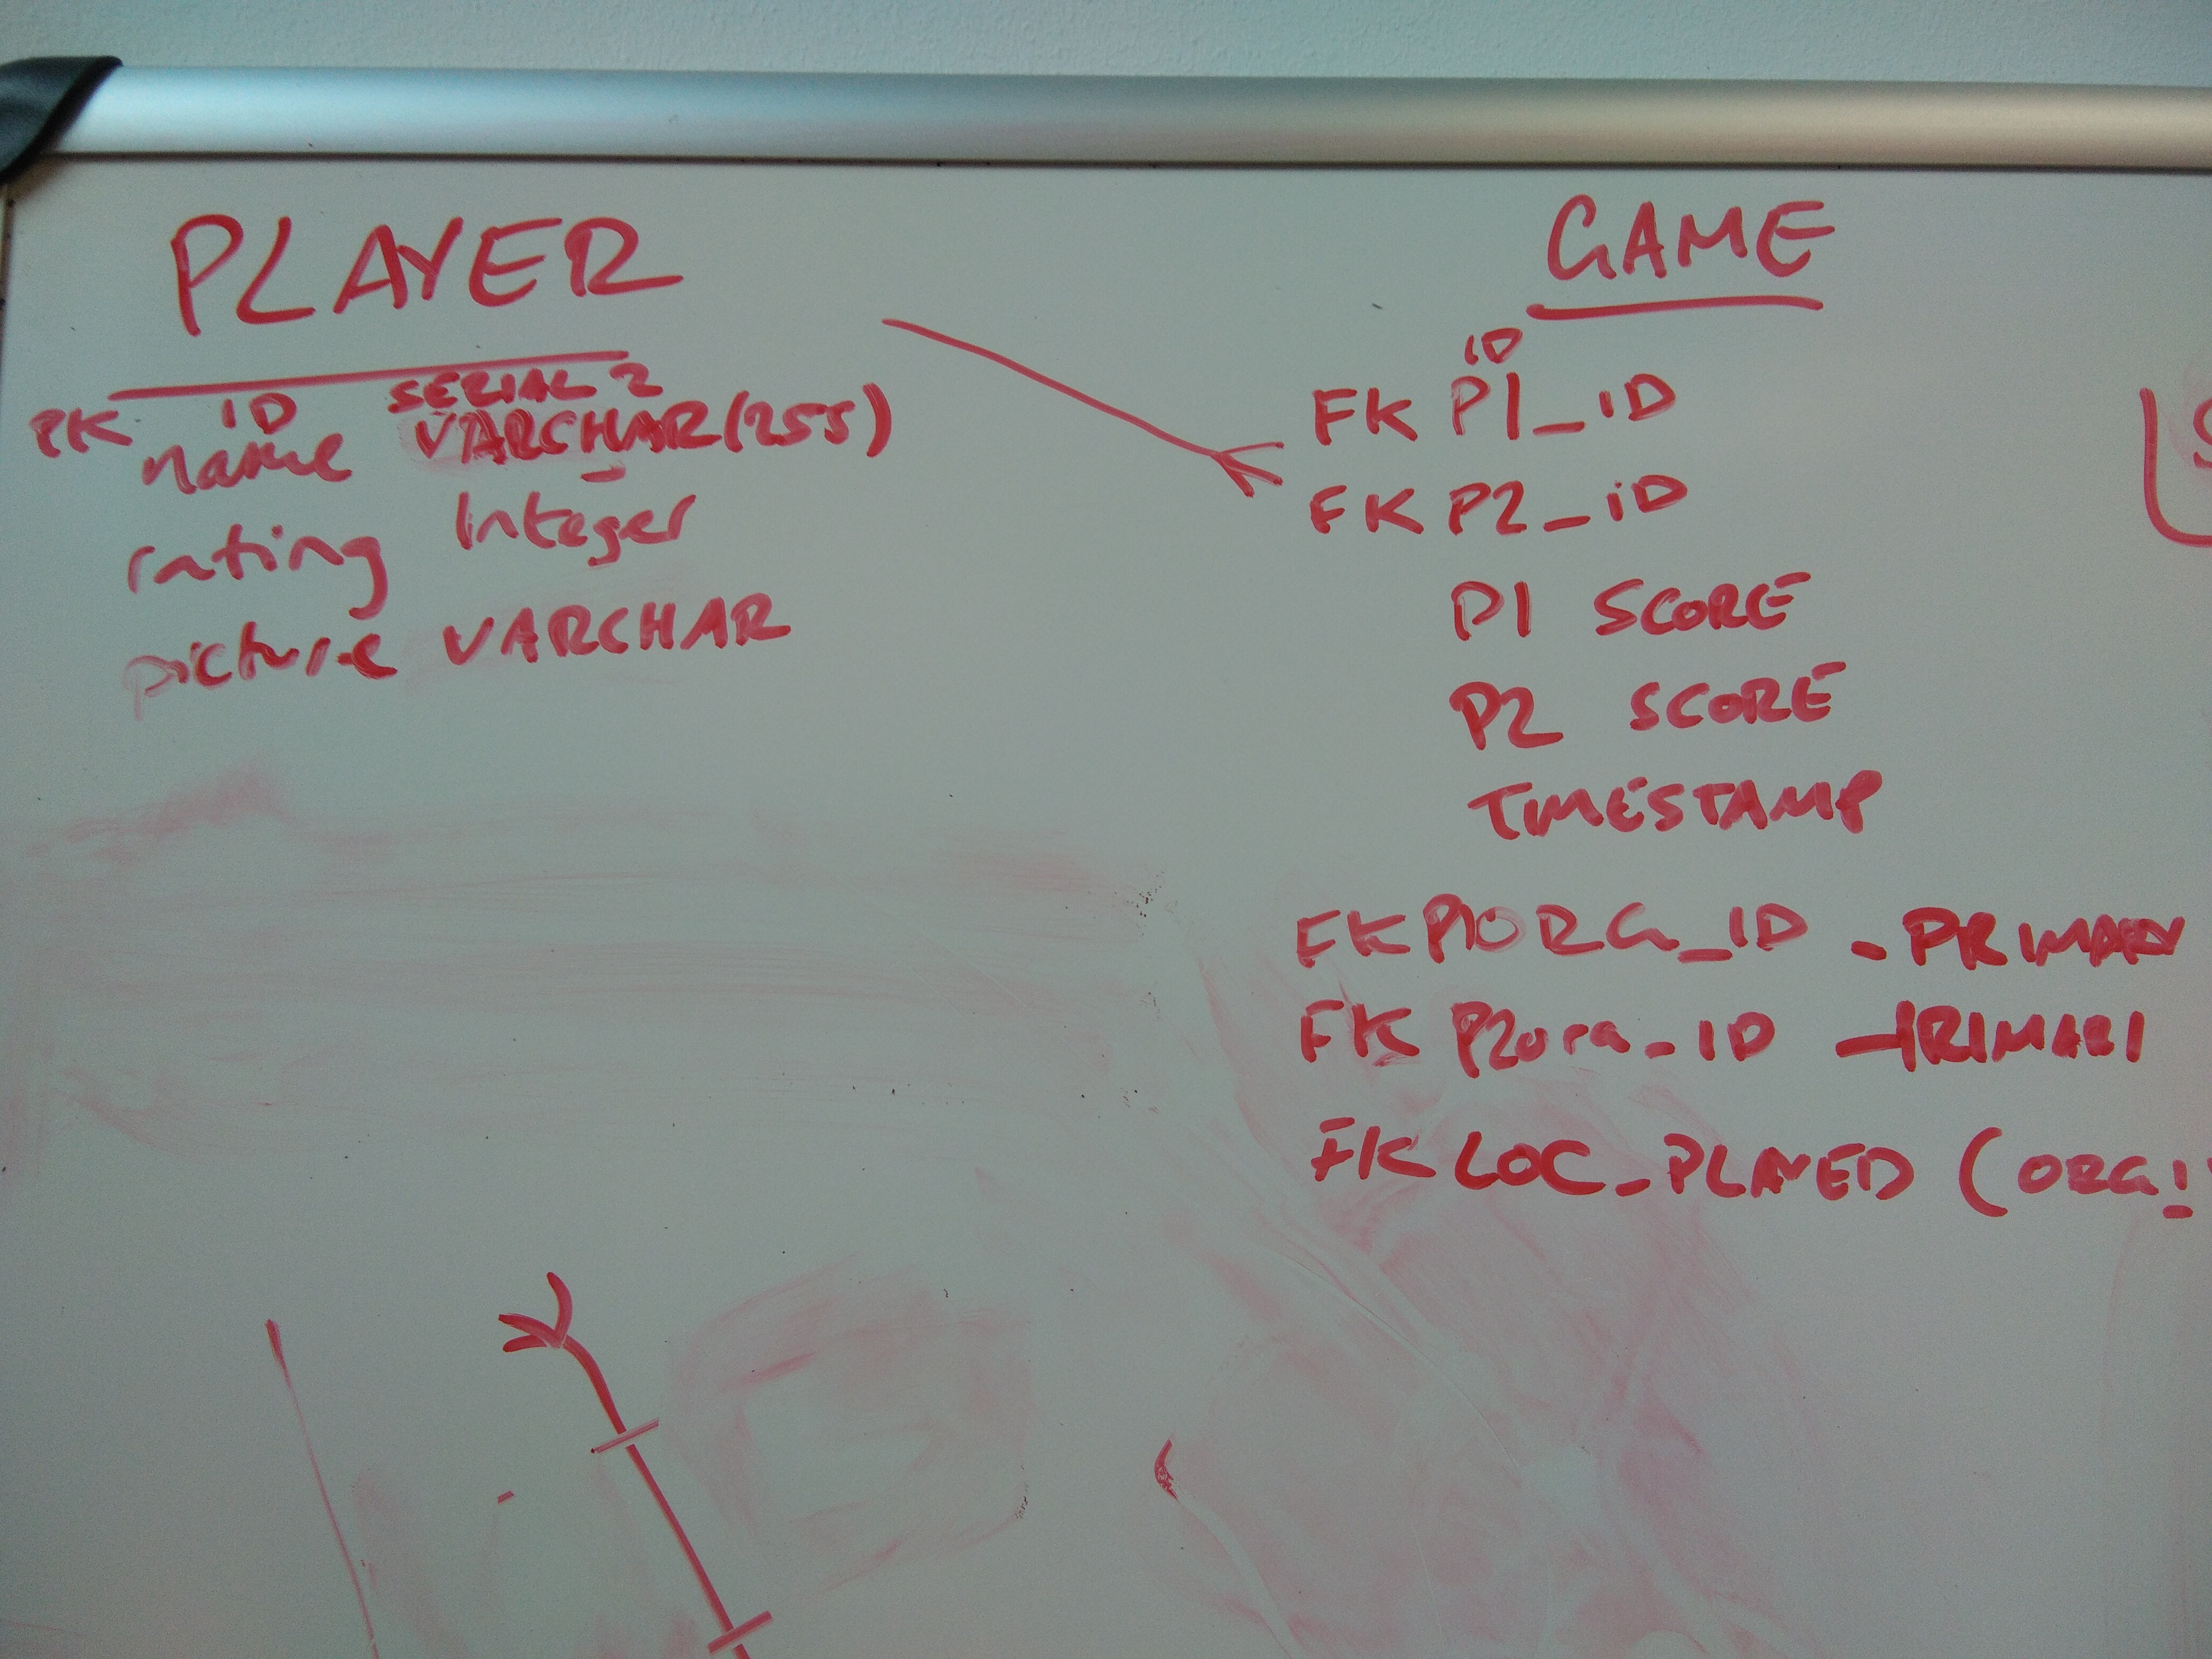 PLAYER
PK ID SERIAL ?
name VARCHAR(255)
rating Integer
picture VARCHAR
GAME
ID
FK P1_ID
FK P2_iD
P1 SCORE
P2 SCORE
TIMESTAMP
FK P1ORG_ID - PRIMARY
FK P2org_ID - PRIMARY
FK LOC_PLAYED (ORG